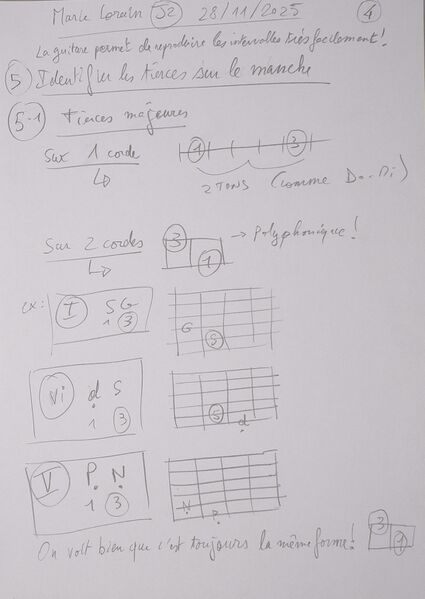 Marie Lorain S2 28/11/2025 4
La guitare permet de reproduire les intervalles très facilement!
5) Identifier les tierces sur le manche
5-1 Tierces majeures
Sur 1 corde 1 3
2 TONS (comme Do-Mi)
Sur 2 cordes 3 1 → Polyphonique!
ex: I S G
1 3
G
S
vi d S
1 3
S
d
V P. N.
1 3
N
P
On voit bien que c'est toujours la même forme! 3
1